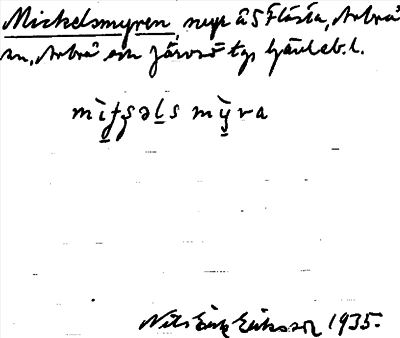 Mickelsmyren, myr å S Flästa, Arbrå
sn, Arbrå och Järvsö tg, Gävleb. l.
mìʃsəls mỳra
Nils Erik Eriksson 1935.